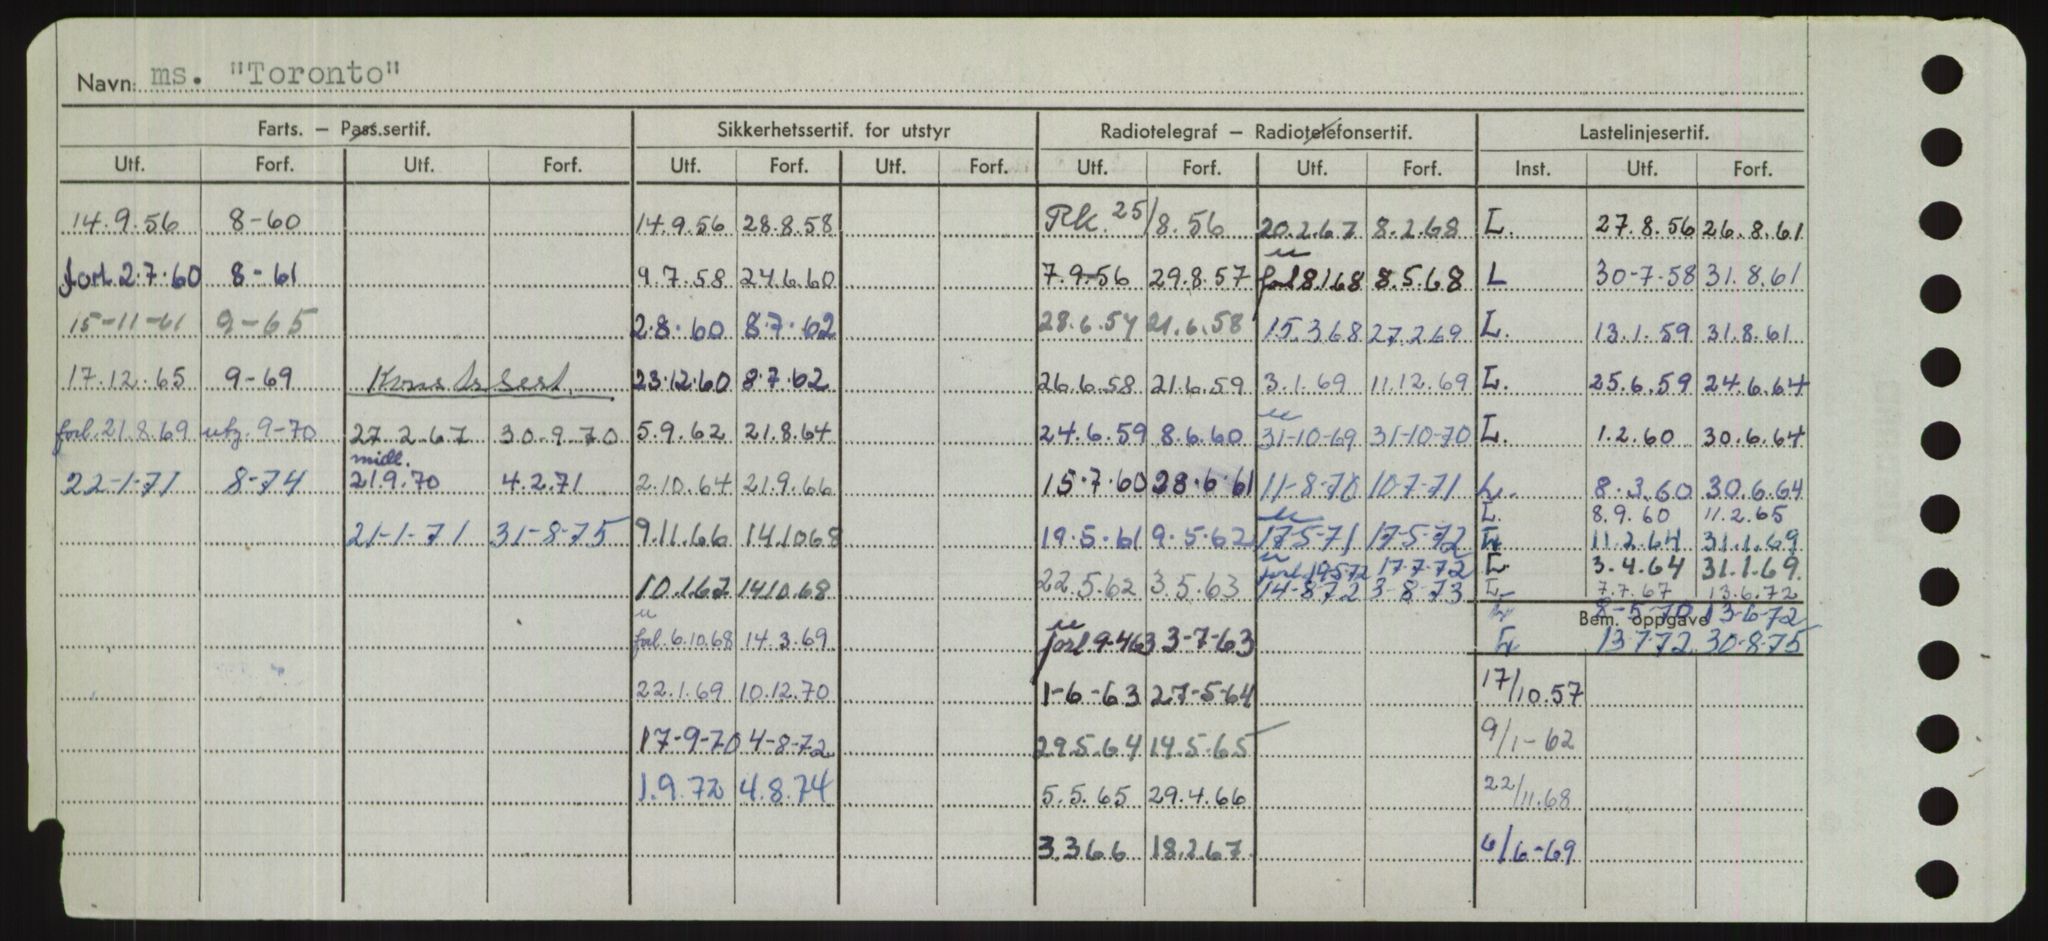 Navn: ms. "Toronto"
Farts. — Pass.sertif. Sikkerhetssertif. for utstyr Radiotelegraf — Radiotelefonsertif. Lastelinjesertif.
Utf. Forf. Utf. Forf. Utf. Forf. Utf. Forf. Utf. Forf. Utf. Forf. Inst. Utf. Forf.
14.9.56 8-60 14.9.56 28.8.58 Rk. 25/8.56 20.2.67 8.2.68 L. 27.8.56 26.8.61
forl 2.7.60 8-61 9.7.58 24.6.60 7.9-56 29.8.57 u forl 8.1.68 8.5.68 L 30-7-58 31.8.61
15-11-61 9-65 2.8.60 8.7.62 28.6.57 21.6.58 15.3.68 27.2.69 L. 13.1.59 31.8.61
17.12.65 9-69 Konstr.sert. 23.12.60 8.7.62 26.6.58 21.6.59 3.1.69 11.12.69 L. 25.6.59 24.6.64
forl. 21.8.69 utg. 9-70 27.2.67 30.9.70 5.9.62 21.8.64 24.6.59 8.6.60 u 31-10-69 31-10-70 L. 1.2.60 30.6.64
22-1-71 8-74 midl. 21.9.70 4.2.71 2.10.64 21.9.66 15.7.60 28.6 61 11-8-70 10-7-71 L. 8.3.60 30.6.64
L. 8.9.60 11.2.65
21-1-71 31-8-75 9.11.66 14.10.68 19.5.61 9.5.62 u 17-5-71 17-5-72 L. 11.2.64 31.1.69
u forl. 19.5.72 17-7-72 L. 3.4.64 31.1.69.
10.1.67 14.10.68 22.5.62 3.5.63 14-8-72 3-8-73 L. 7.7.67 13.6.72
8-5-70 13-6-72
Bem. oppgave
u forl. 6.10.68 14.3.69 u forl 9-4-63 3-7-63 13-7-72 30-8-75
22.1.69 10.12.70 1-6-63 27-5-64 17/10.57
17-9-70 4-8-72 29.5.64 14.5.65 9/1-62
1.9.72 4.8.74 5.5.65 29.4.66 22/11.68
3.3.66 18.2.67 6/6-69